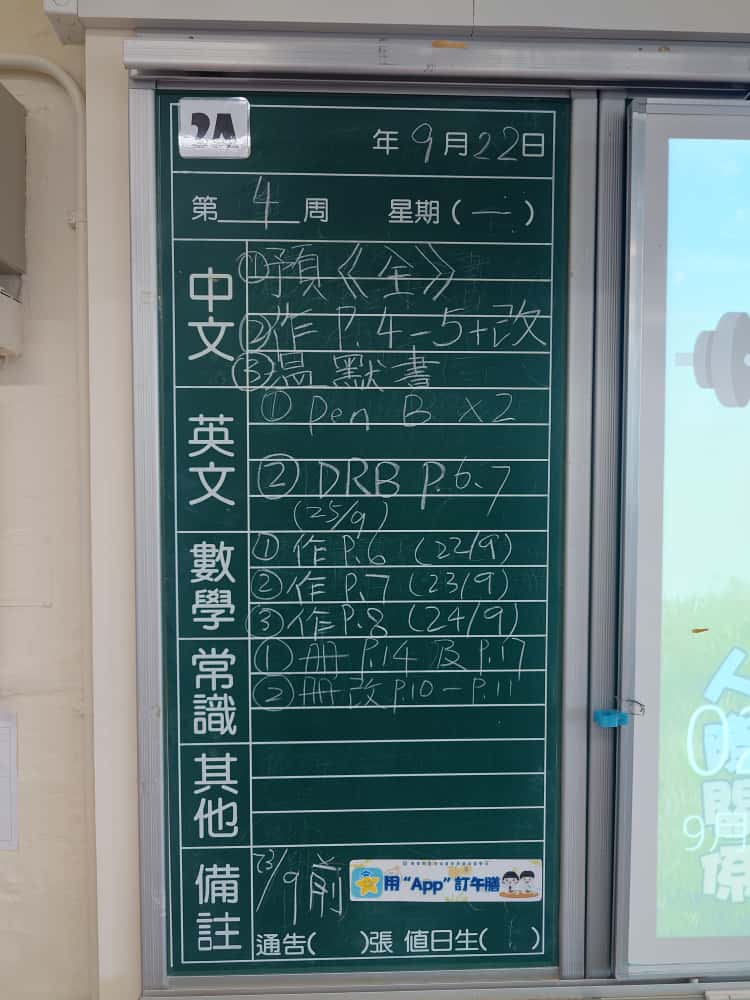 2A
年9月22日
第4周 星期(一)
中文
①預《全》
②作 P.4-5+改
③温默書
英文
① pen B x2
② DRB P.6.7
(25/9)
數學
①作P.6 (22/9)
②作P.7 (23/9)
③作P.8 (24/9)
常識
①册 P.14 及 P.17
②册改 P.10-P.11
其他
備註
23/9前
用“App”訂午膳
通告( )張 值日生( )
人際關係
9月